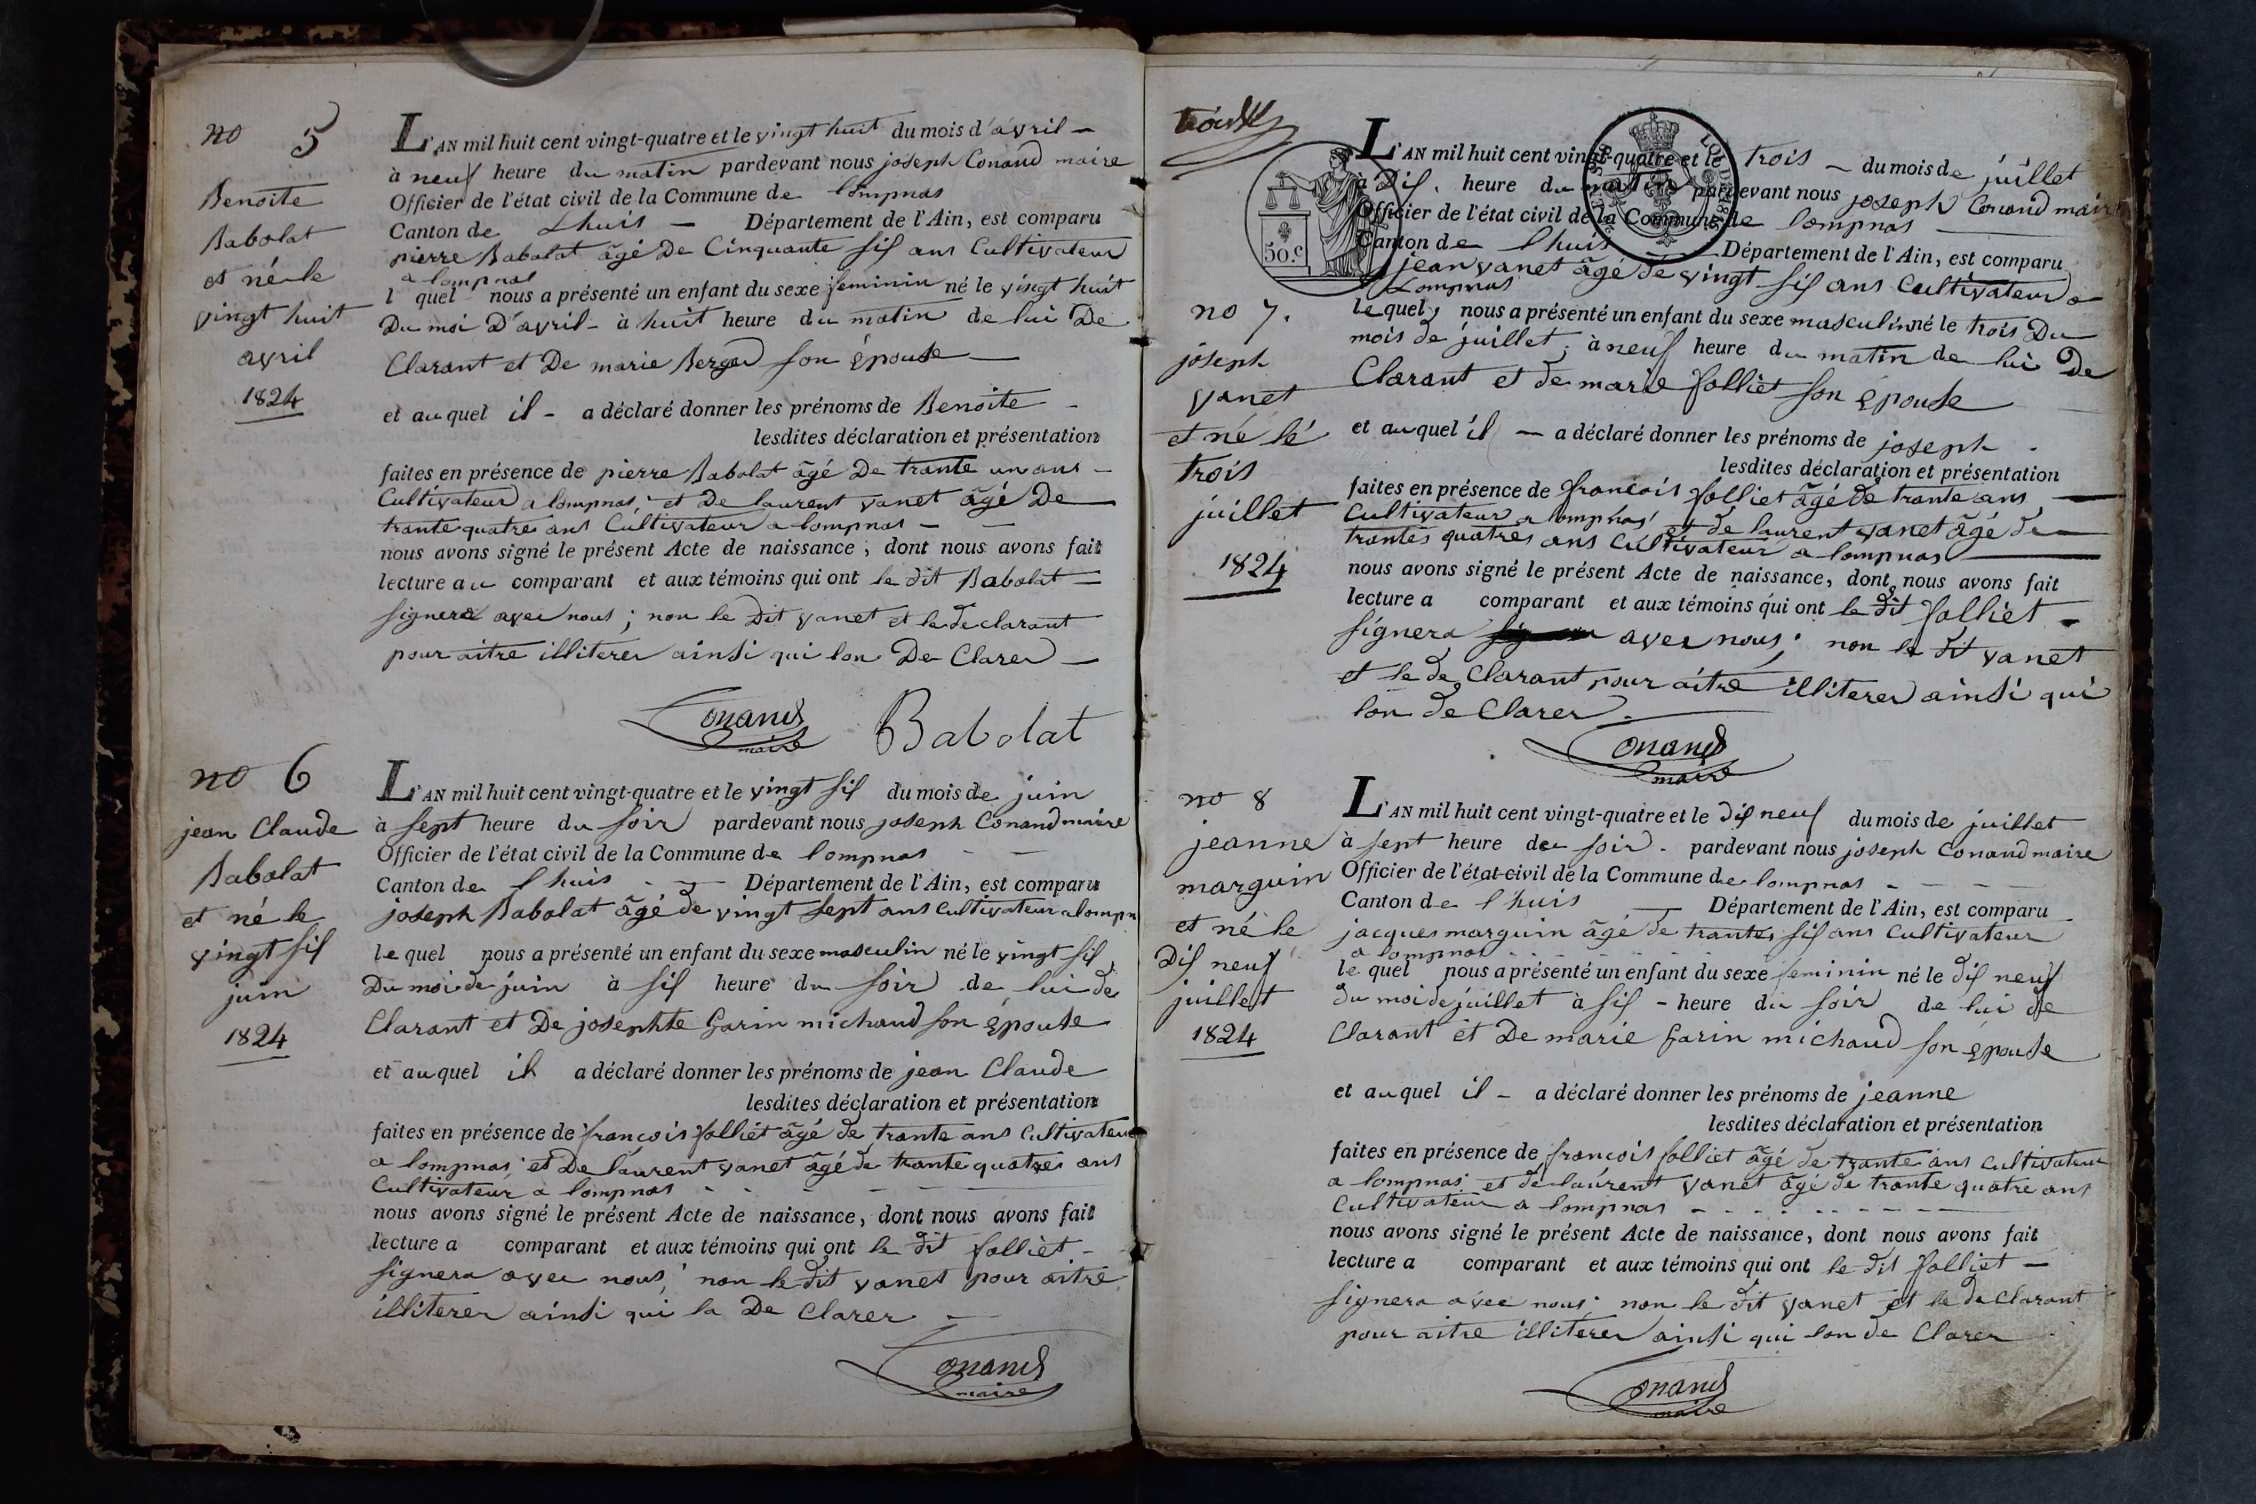 no 5
Benoite
Babolat
et né le
vingt huit
avril
1824
L'AN mil huit cent vingt-quatre et le vingt huit du mois d'avril
à neuf heure du matin pardevant nous joseph Conand maire
Officier de l'état civil de la Commune de lompnas
Canton de Lhuis Département de l'Ain, est comparu
pierre Babolat âgé De Cinquante six ans Cultivateur
a lompnas
l quel nous a présenté un enfant du sexe feminin né le vingt huit
Du moi D'avril à huit heure du matin de lui De
Clarant et De marie Berger son épouse
et auquel il a déclaré donner les prénoms de Benoite
lesdites déclaration et présentation
faites en présence de pierre Babolat âgé De trante un ans
Cultivateur a lompnas; et De laurent vanet âgé De
trante quatre ans Cultivateur a lompnas
nous avons signé le présent Acte de naissance, dont nous avons fait
lecture au comparant et aux témoins qui ont le dit Babolat
signera avec nous; non le Dit vanet et le declarant
pour aitre illiterer ainsi qui lon De Clarer
Conand
maire
Babolat
no 6
jean Claude
Babolat
et né le
vingt six
juin
1824
L'AN mil huit cent vingt-quatre et le vingt six du mois de juin
à sept heure du soir pardevant nous joseph Conand maire
Officier de l'état civil de la Commune de lompnas
Canton de lhuis Département de l'Ain, est comparu
joseph Babolat âgé de vingt sept ans Cultivateur a lompn
lequel nous a présenté un enfant du sexe masculin né le vingt six
Du moi de juin à six heure du soir de lui de
Clarant et De josephte Garin michaud son épouse
et auquel il a déclaré donner les prénoms de jean Claude
lesdites déclaration et présentation
faites en présence de francois folliet âgé de trante ans Cultivateur
a lompnas et De laurent vanet âgé de trante quatres ans
Cultivateur a lompnas
nous avons signé le présent Acte de naissance, dont nous avons fait
lecture a comparant et aux témoins qui ont le dit folliet
signera avec nous; non le dit vanet pour aitre
illiterer ainsi qui la De Clarer
Conand
maire
trois
50.c
LOI DE 1816
no 7.
joseph
vanet
et né le
trois
juillet
1824
L'AN mil huit cent vingt-quatre et le trois du mois de juillet
à Dix heure du matin pardevant nous joseph Conand maire
Officier de l'état civil de la Commune de lompnas
Canton de lhuis Département de l'Ain, est comparu
jean vanet âgé de vingt six ans Cultivateur a
Lompnas
lequel nous a présenté un enfant du sexe masculin né le trois Du
mois de juillet; à neuf heure du matin de lui De
Clarant et de marie folliet son épouse
et auquel il a déclaré donner les prénoms de joseph
lesdites déclaration et présentation
faites en présence de francois folliet âgé de trante ans
Cultivateur a lompnas et de laurent vanet âgé de
trantes quatres ans Cultivateur a lompnas
nous avons signé le présent Acte de naissance, dont nous avons fait
lecture a comparant et aux témoins qui ont le dit folliet
signera avec nous; non le dit vanet
et le de Clarant pour aitre illiterer ainsi qui
lon de Clarer
Conand
maire
no 8
jeanne
marguin
et né le
Dix neuf
juillest
1824
L'AN mil huit cent vingt-quatre et le dix neuf du mois de juillet
à sept heure deu soir pardevant nous joseph Conand maire
Officier de l'état-civil de la Commune de lompnas
Canton de l'huis Département de l'Ain, est comparu
jacques marguin âgé de trantes six ans Cultivateur
a lompnas
le quel nous a présenté un enfant du sexe feminin né le dix neuf
du moi de juillet à six heure du soir de lui de
Clarant et De marie Garin michaud son épouse
et auquel il a déclaré donner les prénoms de jeanne
lesdites déclaration et présentation
faites en présence de francois folliet âgé de trante ans Cultivateur
a lompnas et de laurent vanet âgé de trante quatre ans
Cultivateur a lompnas
nous avons signé le présent Acte de naissance, dont nous avons fait
lecture a comparant et aux témoins qui ont le dit folliet
signera avec nous; non le dit vanet et le de Clarant
pour aitre illiterer ainsi qui lon de Clarer
Conand
maire